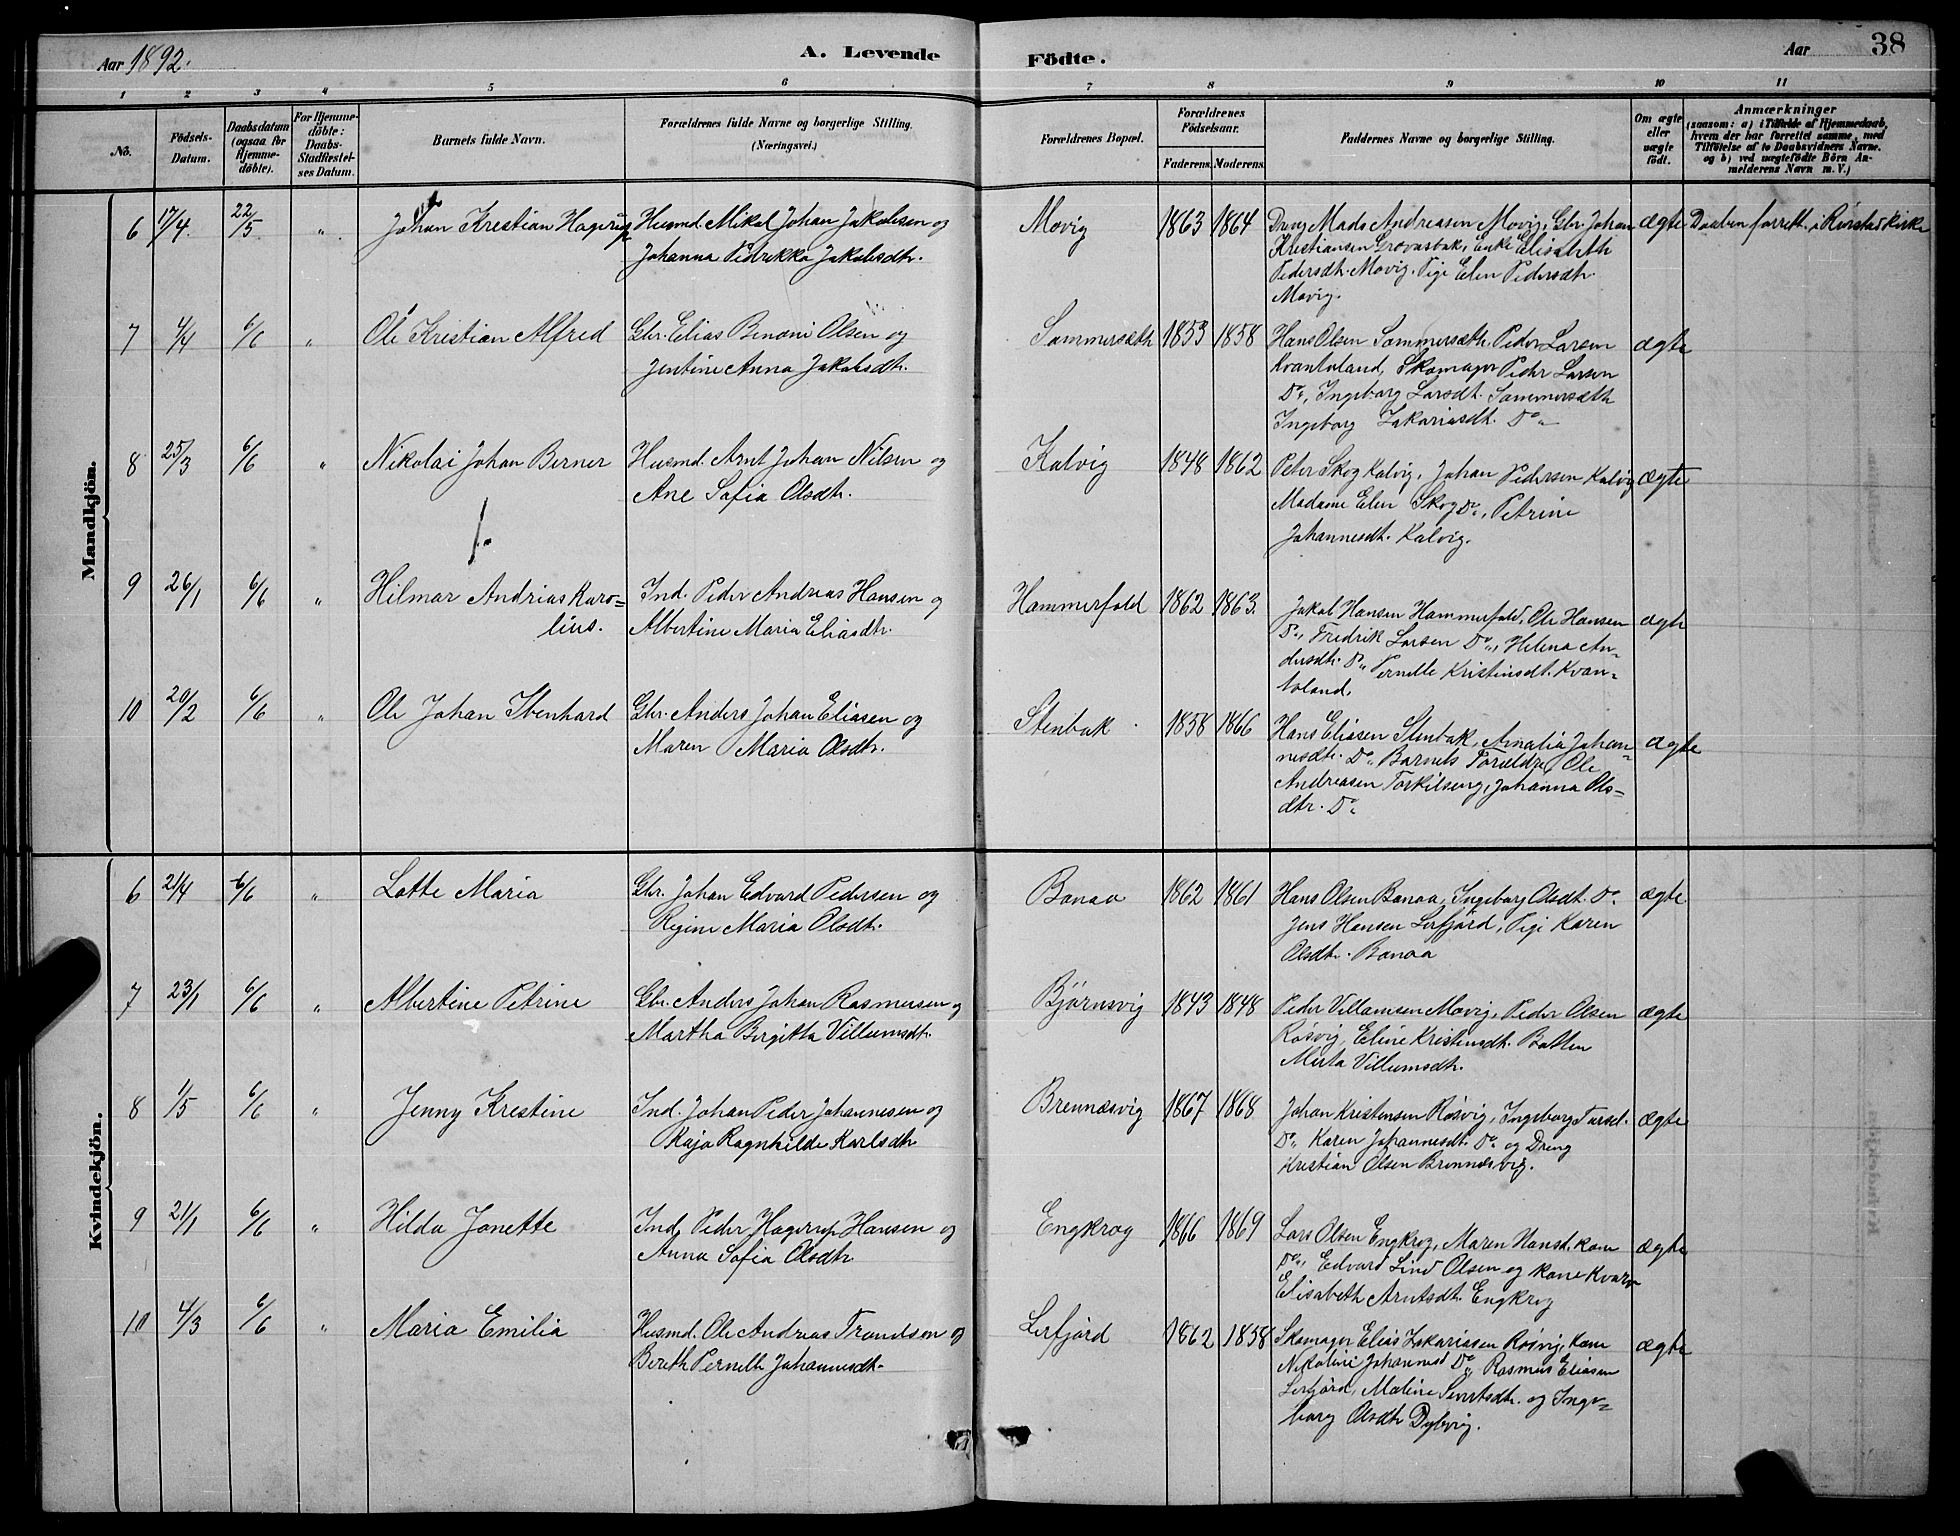 Aar 1892.
A. Levende
Födte.
Aar
38
1 2 3 4 5 6 7 8 9 10 11
No.
Födsels-
Datum.
Daabsdatum
(ogsaa for
Hjemme-
døbte).
For Hjemme-
døbte:
Daabs-
Stadfæstel-
ses Datum.
Barnets fulde Navn.
Forældrenes fulde Navne og borgerlige Stilling.
(Næringsvei.)
Forældrenes Bopæl.
Forældrenes
Födselsaar.
Faderens. Moderens.
Faddernes Navne og borgerlige Stilling.
Om ægte
eller
uægte
født.
Anmærkninger
(saasom: a) i Tilfælde af Hjemmedaab,
hvem der har forrettet samme, med
Tilföielse af to Daabsvidners Navne.
og b) ved uægtefödte Börn An-
melderens Navn m. V.)
Mandkjön.
6 17/4 22/5 " Johan Krestian Hagerup
Husmd. Mikal Johan Jakobsen og
Johanna Pedrikka Jakobsdtr.
Movig 1863 1864
Dreng Mads Andreasen Movig, Gbr. Johan
Kristiansen Grovasbak, Enke Elisabeth
Pedersdt. Movig, Pige Elen Pedersdtr.
Movig.
ægte
Daaben forrett. i Rørstad Kirke
7 4/4 6/6 " Ole Kristian Alfred
Gbr. Elias Benoni Olsen og
Jentine Anna Jakobsdtr.
Sommersæth 1853 1858
Hans Olsen Sommersæth, Peder Larsen
Kvantoland, Skomager Peder Larsen
Do, Ingeborg Larsdt. Sommersæth
Ingeborg Zakariasdt. Do
ægte
8 25/3 6/6 " Nikolai Johan Berner
Husmd. Arnt Johan Nilsen og
Ane Sofia Olsdtr.
Kalvig 1848 1862
Peter Skog Kalvig, Johan Pedersen Kalvig
Madame Elen Skog Do, Petrine
Johannesdt. Kalvig.
ægte
9 26/1 6/6 " Hilmar Andrias Karo=
lius.
Ind. Peder Andreas Hansen og
Albertine Maria Eliasdtr.
Hammerfald 1862 1863.
Jakob Hansen Hammerfald, Ole Hansen
Do, Fredrik Larsen Do, Helena An-
dersdtr. Do Pernille Kristensdt. Kvan-
toland.
ægte
10 20/2 6/6 " Ole Johan Ibenhard
Gbr. Anders Johan Eliasen og
Maren Maria Olsdtr.
Stenbak 1858 1866
Hans Eliasen Stenbak, Amalia Johan=
nesdtr. Do Barnets Forældre, Ole
Andreasen Torkilseng, Johanna Ols=
dtr. Do
ægte
Kvindekjön.
6 21/4 6/6 " Lotte Maria
Gbr. Johan Edvard Pedersen og
Regine Maria Olsdtr.
Bonaa 1862 1861
Hans Olsen Bonaa, Ingeborg Olsdt. Do
Jens Hansen Lerfjord, Pige Karen
Olsdtr. Bonaa
ægte
7 23/1 6/6 " Albertine Petrine
Gbr. Anders Johan Rasmusen og
Martha Birgitta Villumsdtr.
Bjørnsvig 1843 1848
Peder Villumsen Movig, Peder Olsen
Røsvig, Eline Kristensdt. Botten
Merta Villumsdtr.
ægte
8 1/5 6/6 " Jenny Krestine
Ind. Johan Peder Johannesen og
Kaja Ragnhilde Karlsdtr.
Brennesvig 1867 1868
Johan Kristensen Røsvig, Ingeborg
Do Karen Johannesdt. Do og Dreng
Kristian Olsen Brennesvig.
ægte
9 21/1 6/6 " Hilda Jonette
Ind. Peder Hagerup Hansen og
Anna Sofia Olsdtr.
Engkrog 1866 1869
Lars Olsen Engkrog, Maren Hansd. kone
Do, Edvard Lind Olsen og kone
Elisabeth Arntsdt. Engkrog
ægte
10 4/3 6/6 " Maria Emilia
Husmd. Ole Andrias Trondsen og
Bereth Pernelle Johannesdtr.
Lerfjord 1862 1858
Skomager Elias Zakariasen Røsvig, kone
Nikoline Johannesd. Do Rasmus Eliasen
Lerfjord, Maline Sivertsdtr. og Inge=
borg Olsdtr. Dybvig.
ægte